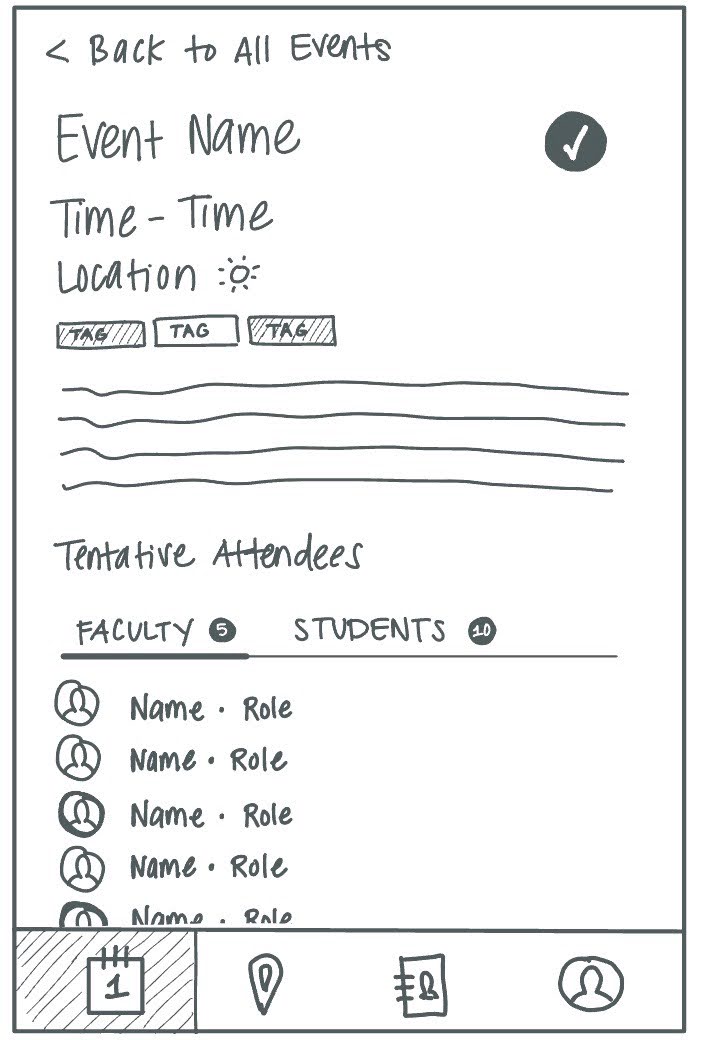 < Back to All Events
Event Name
Time - Time
Location
TAG TAG TAG
Tentative Attendees
FACULTY 5 STUDENTS 10
Name · Role
Name · Role
Name · Role
Name · Role
Name · Role
1